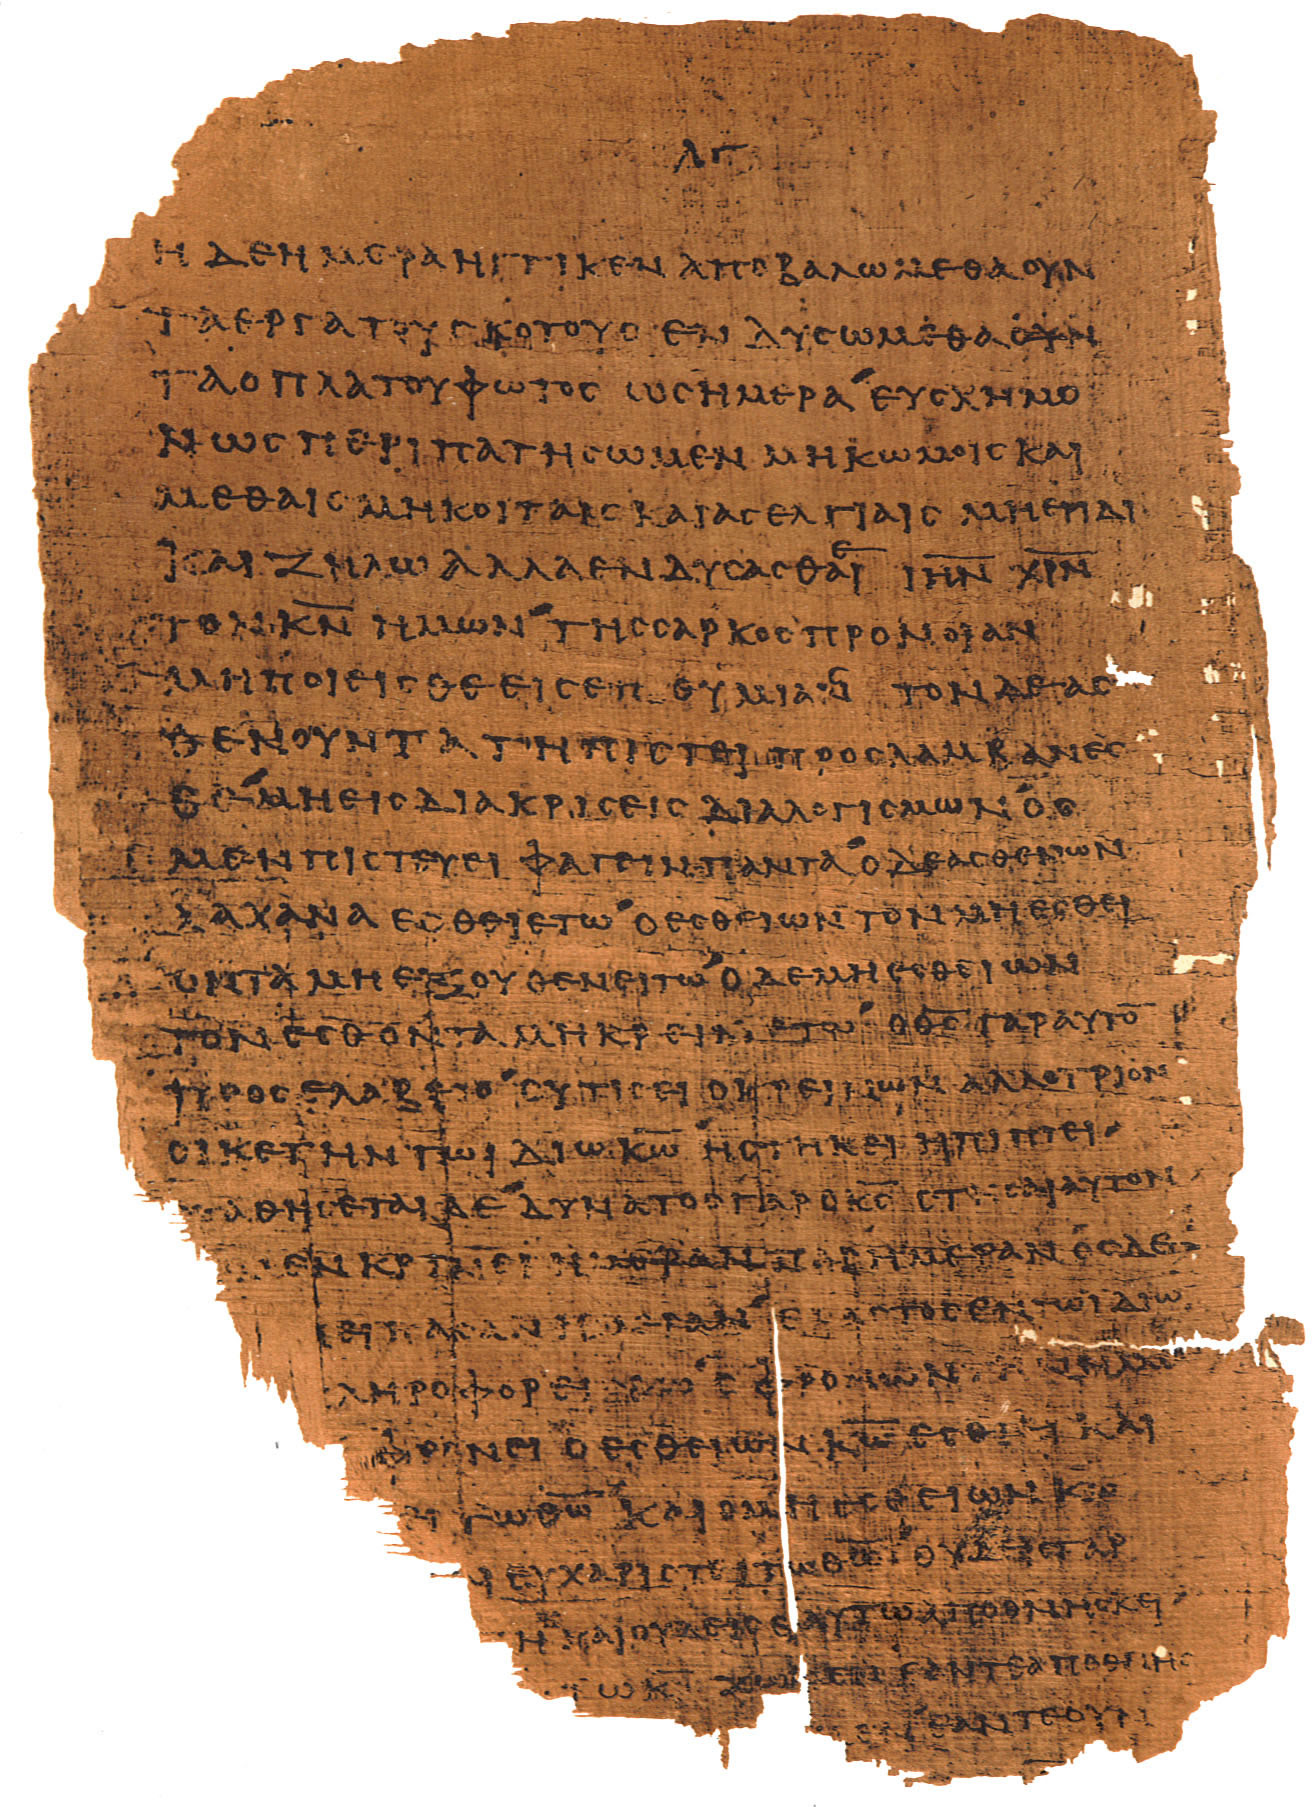 ΛΓ
Η ΔΕ ΗΜΕΡΑ ΗΓΓΙΚΕΝ ΑΠΟΒΑΛΩΜΕΘΑ ΟΥΝ
ΤΑ ΕΡΓΑ ΤΟΥ ΣΚΟΤΟΥΣ ΕΝΔΥΣΩΜΕΘΑ ΟΥΝ
ΤΑ ΟΠΛΑ ΤΟΥ ΦΩΤΟΣ ΩΣ ΗΜΕΡΑ ΕΥΣΧΗΜΟ
ΝΩΣ ΠΕΡΙΠΑΤΗΣΩΜΕΝ ΜΗ ΚΩΜΟΙΣ ΚΑΙ
ΜΕΘΑΙΣ ΜΗ ΚΟΙΤΑΙΣ ΚΑΙ ΑΣΕΛΓΙΑΙΣ ΜΗ ΕΡΙΔΙ
ΚΑΙ ΖΗΛΩ ΑΛΛΑ ΕΝΔΥΣΑΣΘΑΙ ΙΗΝ ΧΡΝ
ΤΟΝ ΚΝ ΗΜΩΝ ΤΗΣ ΣΑΡΚΟΣ ΠΡΟΝΟΙΑΝ
ΜΗ ΠΟΙΕΙΣΘΕ ΕΙΣ ΤΟΝ ΔΕ ΑΣ
ΘΕΝΟΥΝΤΑ ΤΗ ΠΙΣΤΕΙ ΠΡΟΣΛΑΜΒΑΝΕΣ
ΘΕ ΜΗ ΕΙΣ ΔΙΑΚΡΙΣΕΙΣ ΔΙΑΛΟΓΙΣΜΩΝ ΟΣ
ΜΕΝ ΠΙΣΤΕΥΕΙ ΦΑΓΕΙΝ ΠΑΝΤΑ Ο ΔΕ ΑΣΘΕΝΩΝ
ΛΑΧΑΝΑ ΕΣΘΕΙΕΤΩ Ο ΕΣΘΕΙΩΝ ΤΟΝ ΜΗ ΕΣΘΕΙ
ΟΝΤΑ ΜΗ ΕΞΟΥΘΕΝΕΙΤΩ Ο ΔΕ ΜΗ ΕΣΘΕΙΩΝ
ΤΟΝ ΕΣΘΟΝΤΑ ΜΗ ΚΡΕΙΝΕΤΩ Ο ΘΣ ΓΑΡ ΑΥΤΟ
ΠΡΟΣΕΛΑΒΕΤΟ ΣΥ ΤΙΣ ΕΙ Ο ΚΡΕΙΝΩΝ ΑΛΛΟΤΡΙΟΝ
ΟΙΚΕΤΗΝ ΤΩΙ ΙΔΙΩ ΚΩ ΗΣΤΗΚΕΙ Η ΠΙΠΤΕΙ
ΑΘΗΣΕΤΑΙ ΔΕ ΔΥΝΑΤΟΣ ΓΑΡ Ο ΚΣ ΣΤΗΣΑΙ ΑΥΤΟΝ
ΜΕΝ ΚΡΙΝΕΙ ΗΜΕΡΑΝ ΠΑΡ ΗΜΕΡΑΝ ΟΣ ΔΕ
ΝΕΙ ΠΑΣΑΝ ΗΜΕΡΑΝ ΕΚΑΣΤΟΣ ΕΝ ΤΩΙ ΙΔΙΩ
ΛΗΡΟΦΟΡΕΙ Ο ΦΡΟΝΩΝ
ΦΡΟΝΕΙ Ο ΕΣΘΕΙΩΝ ΚΩ ΕΣΘΙΕΙ ΚΑΙ
ΤΩ ΘΩ ΚΑΙ Ο ΜΗ ΕΣΘΕΙΩΝ ΚΩ
ΕΥΧΑΡΙΣΤΕΙ ΤΩ ΘΩ ΟΥΔΕΙΣ ΓΑΡ
ΖΗ ΚΑΙ ΟΥΔΕΙΣ ΕΑΥΤΩ ΑΠΟΘΝΗΣΚΕΙ
ΤΩ ΚΩ ΕΑΝ ΤΕ ΑΠΟΘΝΗΣ
ΕΑΝ ΤΕ ΟΥΝ